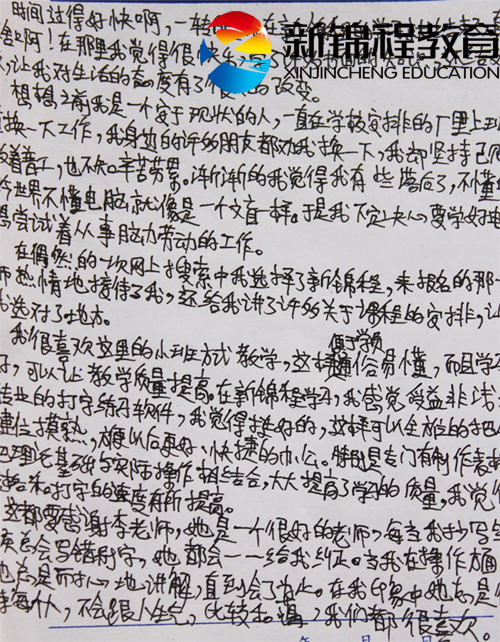 时间过得好快啊，一转
新锦程教育
XINJINCHENG EDUCATION
舍啊！在那里我觉得很快
让我对生活的态度有了很 的改变。
想想之前我是一个安于现状的人，一直在学校安排的厂里上班
换一下工作，我身边的许多朋友都劝我换一下，我却坚持己
着，也不知辛苦劳累。渐渐的我觉得我有些落后了，不懂
世界不懂电脑就像是一个文盲一样。于是我下定决心要学好
尝试着从事脑力劳动的工作。
在偶然的一次网上搜索中我选择了新锦程，来报名的那一
师热情地接待了我，还给我讲了许多关于课程的安排，让
我选对了地方。
便于学员
我很喜欢这里的小班方式教学，这样通俗易懂，而且学
可以让教学质量提高。在新锦程学习，我感觉受益非浅
专业的打字练习软件，我觉得挺好的，这样可以全方位的把
键位摸熟，方便以后更好、快捷的办公。特别是专门有制作表
把理论基础与实际操作相结合，大大提高了学习的质量，我觉
打字的速度有所提高。
这都要感谢李老师，她是一个很好的老师，每当我抄写
总会写错别字，她都会一一给我纠正。当我在操作方面
她总是耐心地讲解，直到会了为止。在我印象中她总是
待每个人，不会跟人生气，比较和谐，我们都很喜欢